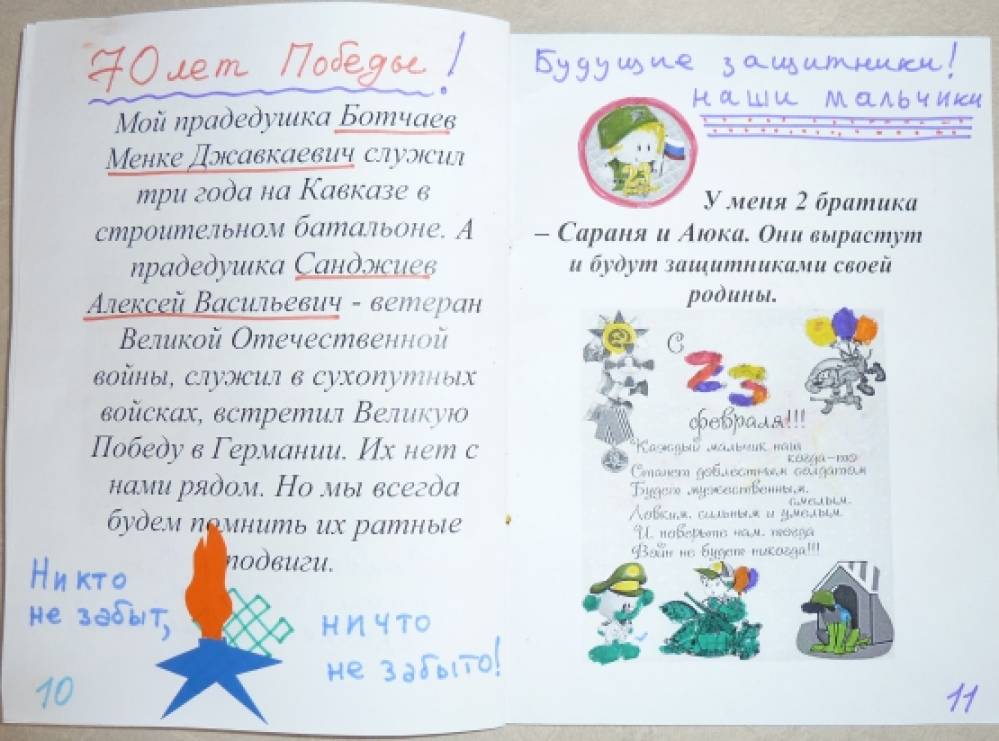 70 лет Победы!
Мой прадедушка Ботчаев
Менке Джавкаевич служил
три года на Кавказе в
строительном батальоне. А
прадедушка Санджиев
Алексей Васильевич - ветеран
Великой Отечественной
войны, служил в сухопутных
войсках, встретил Великую
Победу в Германии. Их нет с
нами рядом. Но мы всегда
будем помнить их ратные
подвиги.
Никто
не забыт,
ничто
не забыто!
10
Будущие защитники!
наши мальчики
У меня 2 братика
– Сараня и Аюка. Они вырастут
и будут защитниками своей
родины.
С
23
февраля!!!
Каждый мальчик наш
когда-то
Станет доблестным солдатом
Будет мужественным,
смелым.
Ловким, сильным и умелым.
И, поверьте нам, тогда
Войн не будет никогда!!!
11